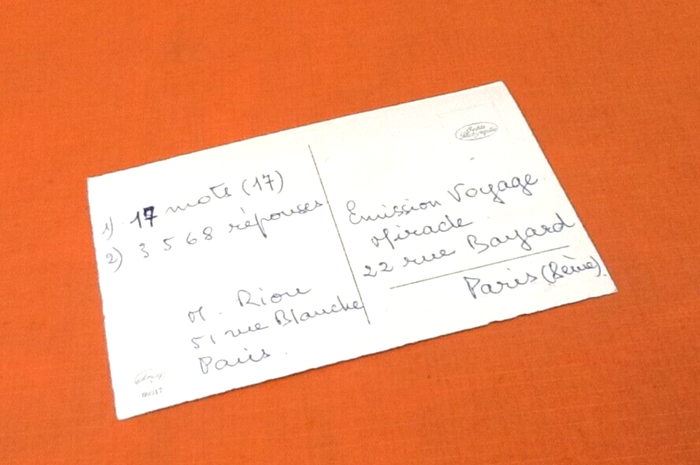 1) 17 mots (17)
2) 3568 réponses
M. Riou
51 rue Blanche
Paris.
Emission Voyage
Miracle
22 rue Bayard
Paris (8ème).